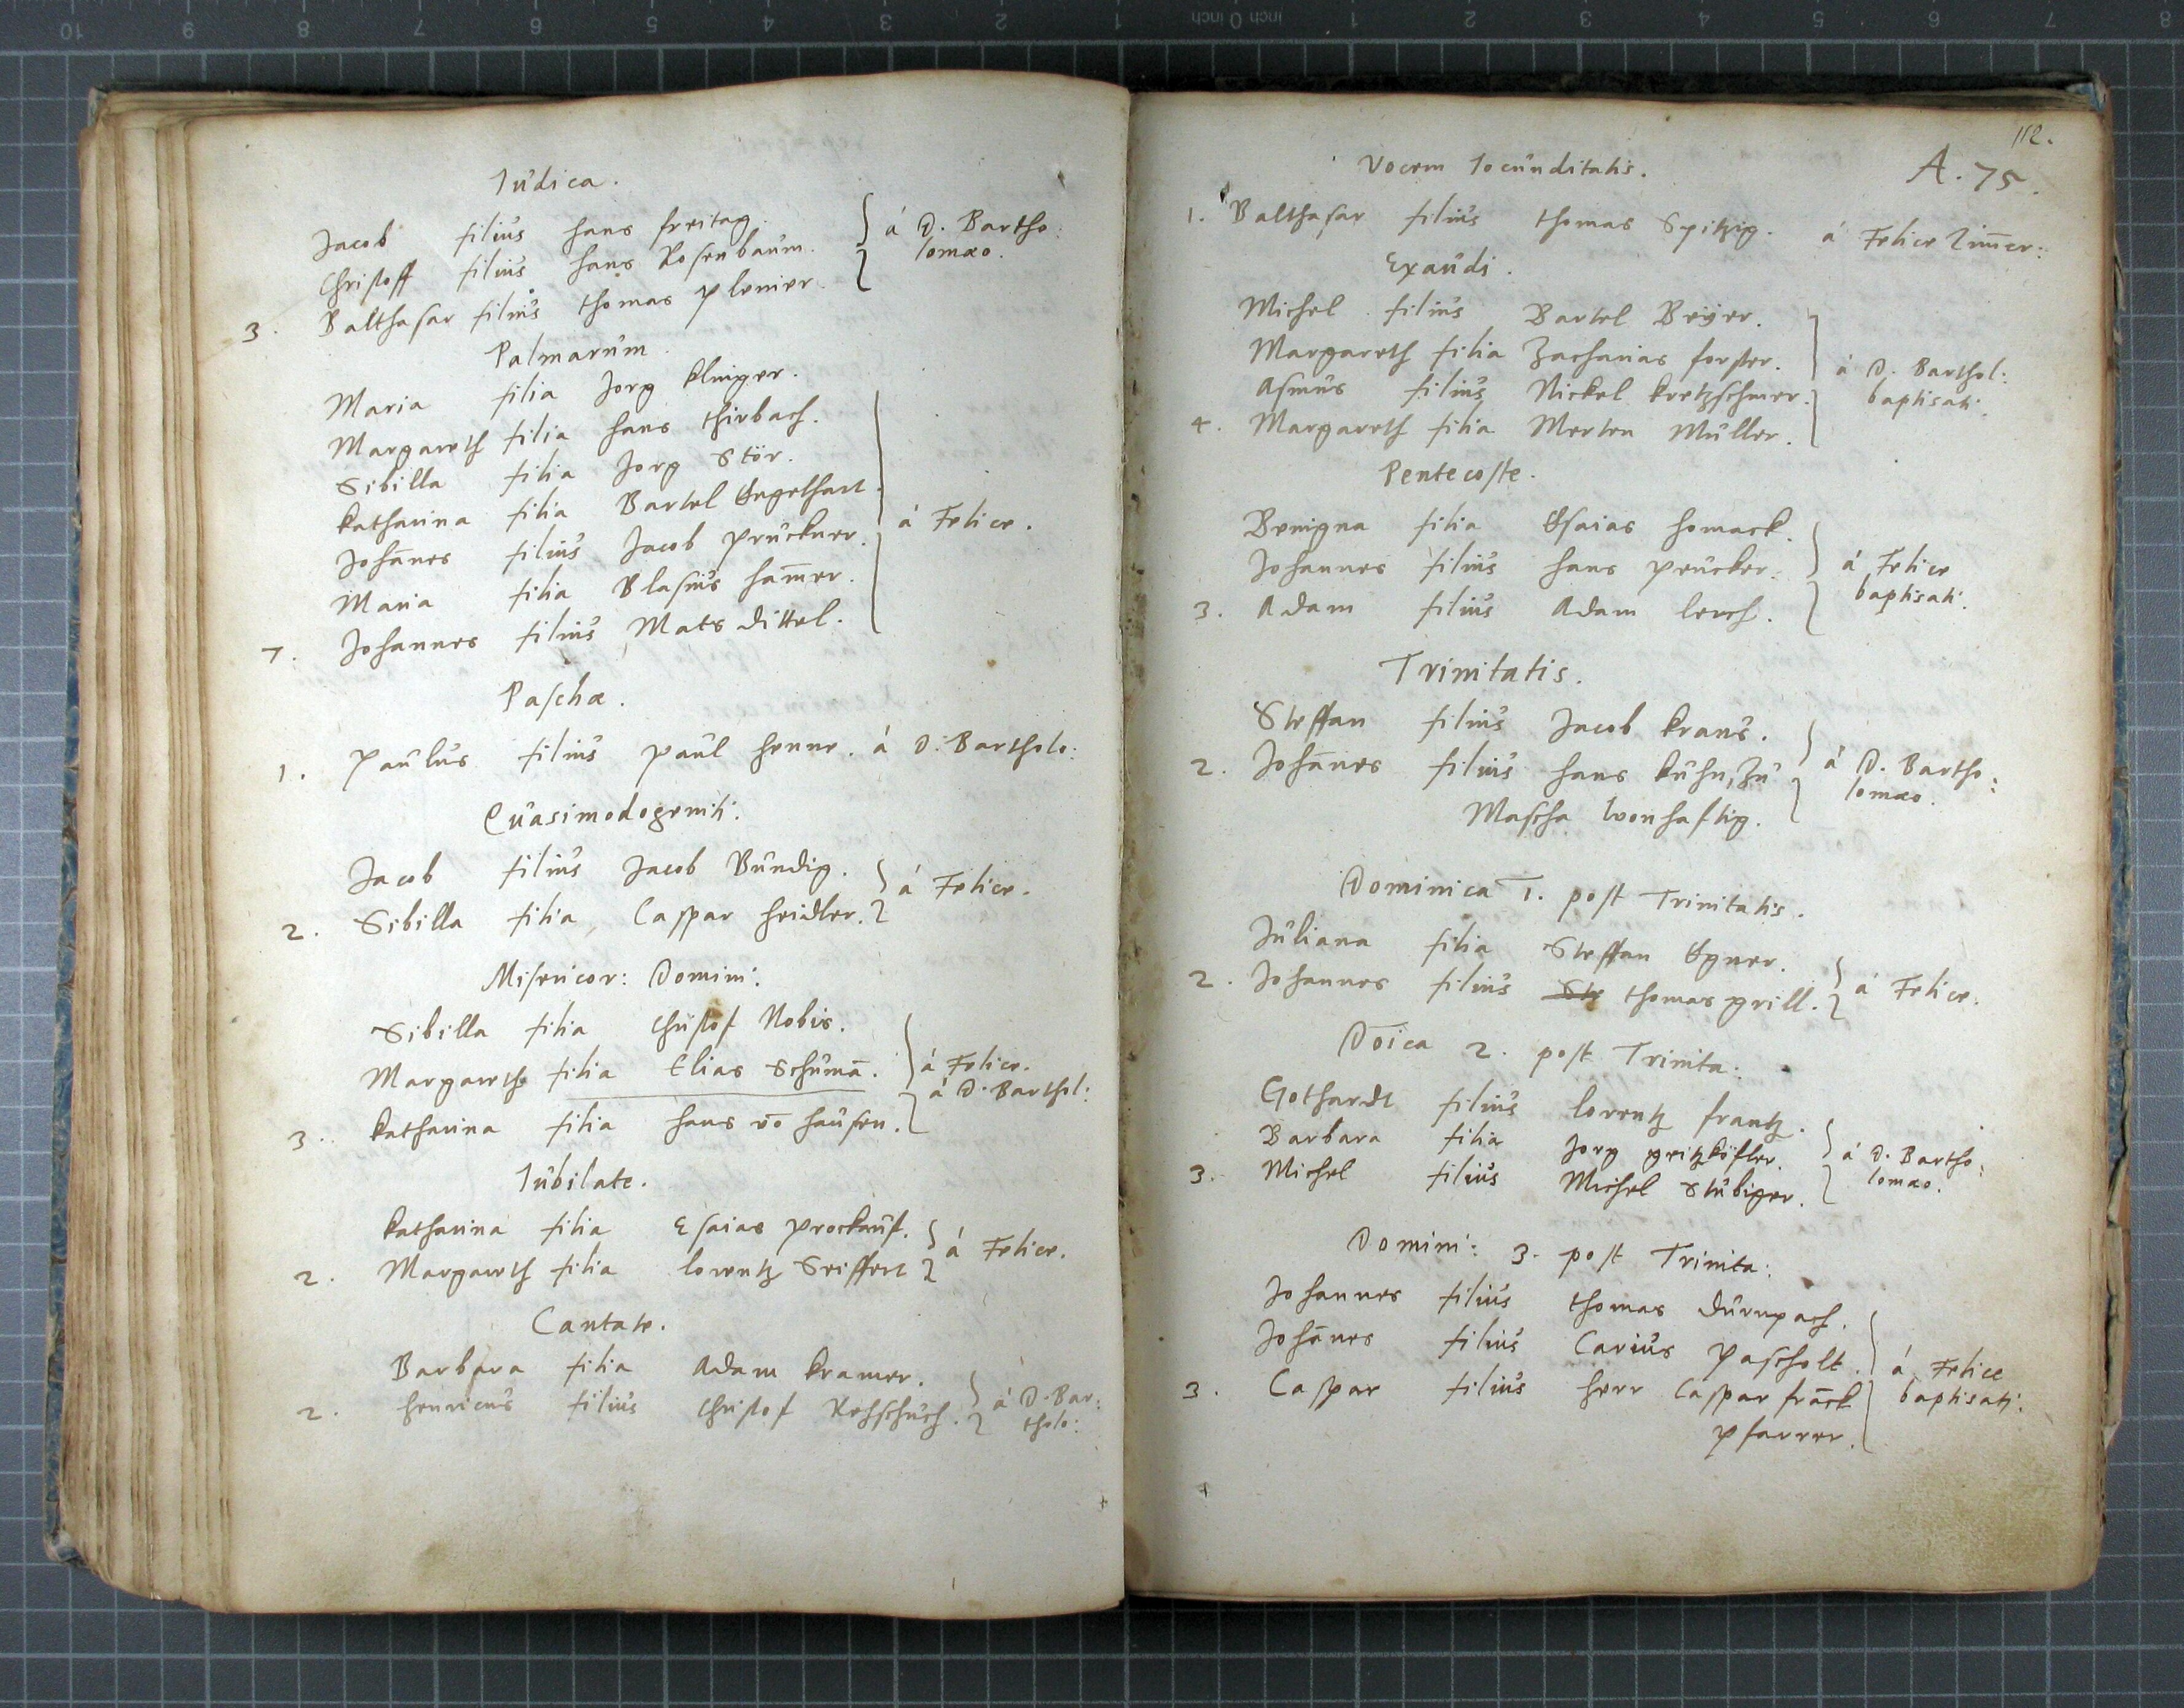 Iudica.
Jacob filius hans freitag. á D. Bartho:
Christoff filius hans Rosenbaum. lomæo.
3. Balthasar filius thomas plenier.
Palmarum.
Maria filia Jorg klinger.
Margareth filia hans thirbach.
Sibilla filia Jorg Stör.
katharina filia Bartel Engelhart.
Johānes filius Jacob prückner. á Felice.
Maria filia Blasius ham̄er.
7. Johannes filius Mats dittel.
Paschæ.
1. Paulus filius paul henne. á D. Bartholo:
Quasimodogeniti.
Jacob filius Jacob Bündig. á Felice.
2. Sibilla filia Caspar heidler.
Misericor: Domini.
Sibilla filia Christof Nobis.
Margaretha filia Elias Schumā. á Felice.
á D. Barthol:
3. katharina filia hans vō hausen.
Iubilate.
katharina filia Esaias prockauf. á Felice.
2. Margareth filia lorentz Seiffert
Cantate.
Barbara filia Adam kramer. á D. Bar:
2. henricus filius Christof Rehschuch. tholo:
112.
A. 75.
Vocem Iocunditatis.
1. Balthasar filius thomas Spitzig. á Felice Zim̄er:
Exaudi.
Michel filius Bartel Beÿer.
Margareth filia Zacharias forster. á D. Barthol:
Asmus filius Nickel kretzschmer. baptisati.
4. Margareth filia Merten Müller.
Pentecoste.
Benigna filia Esaias homack.
Johannes filius hans prücker. á Felice
baptisati.
3. Adam filius Adam lerch.
Trinitatis.
Steffan filius Jacob kraus.
2. Johānes filius hans kühn, zu á D. Bartho:
Mascha wonhafftig. lomæo.
Dominica 1. post Trinitatis.
Juliana filia Steffan Egner.
2. Johannes filius Ste thomas grill. á Felice.
Dōica 2. post Trinita:
Gothardt filius lorentz frantz.
Barbara filia Jorg geitzköfler. á D. Bartho:
3. Michel filius Michel Stübiger. lomæo.
Domini: 3. post Trinita:
Johannes filius thomas dürnpach.
Johānes filius Carius pascholt. á Felice
3. Caspar filius herr Caspar frāck baptisati.
pfarrer.